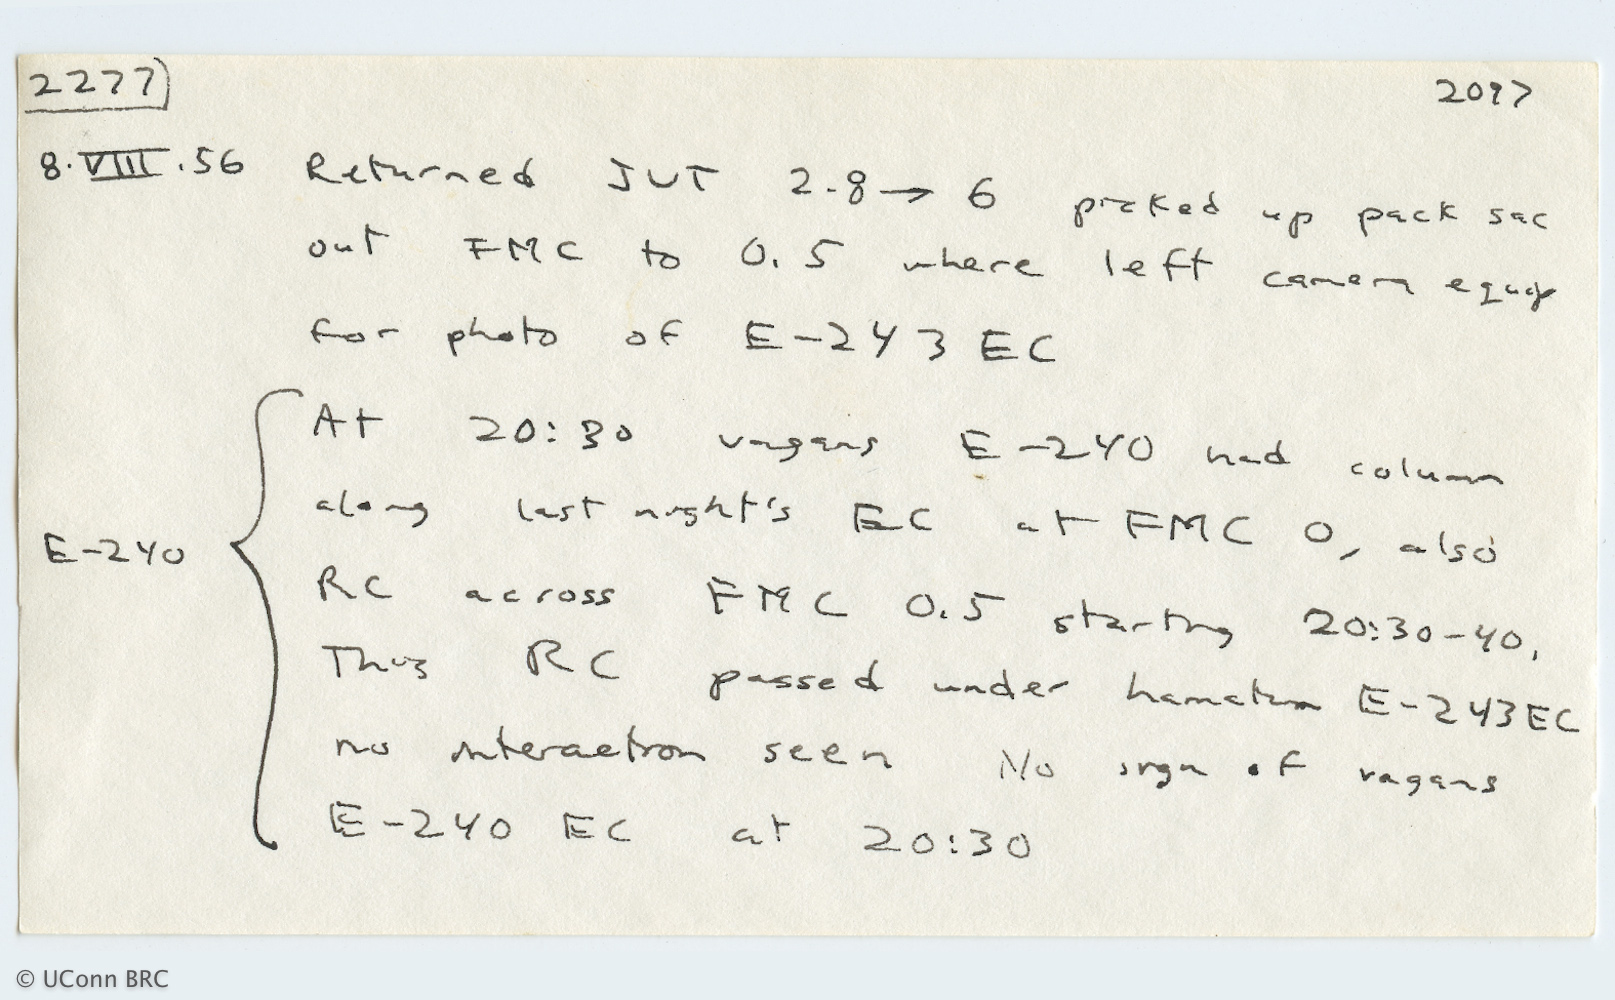 2277 2097
8.VIII.56 Returned JUT 2.8→ 6 picked up pack sac
out FMC to 0.5 where left camera equip
for photo of E-243 EC
At 20:30 vagans E-240 had column
along last night's EC at FMC 0, also
E-240
RC across FMC 0.5 starting 20:30-40,
Thus RC passed under hamatum E-243 EC
no interaction seen No sign of vagans
E-240 EC at 20:30
© UConn BRC